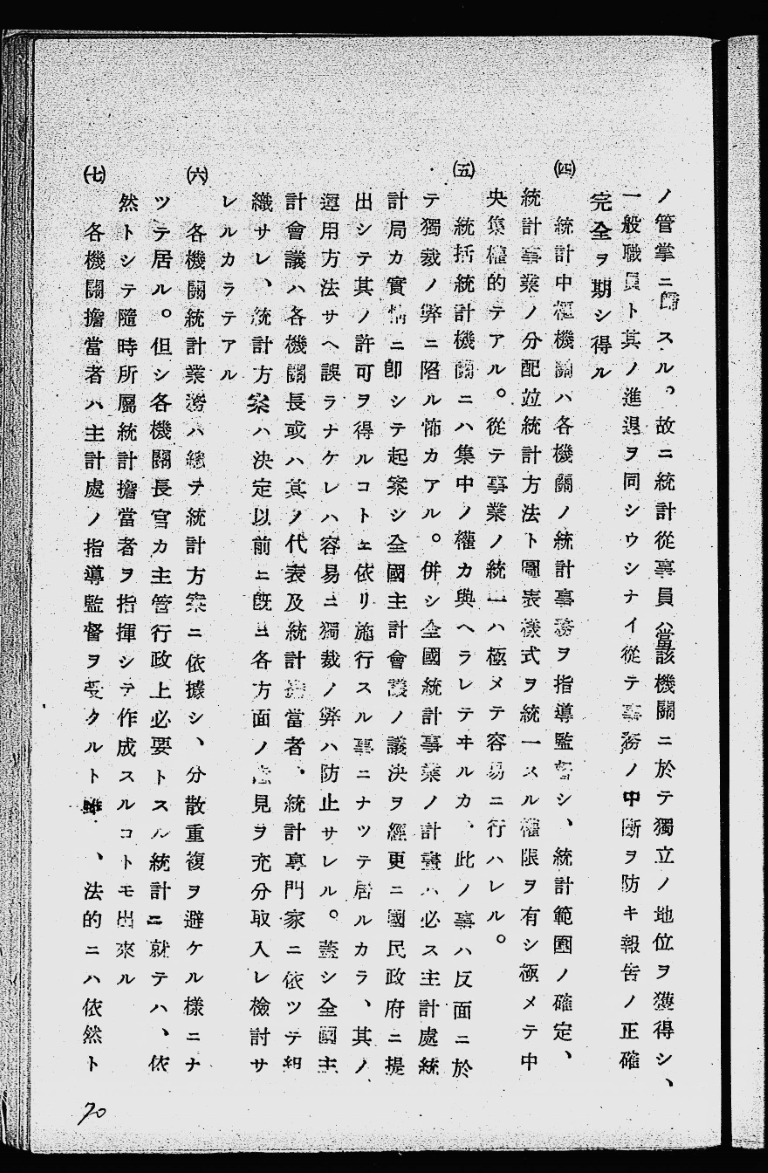 ノ管掌ニ歸スル。故ニ統計從事員ハ當該機關ニ於テ獨立ノ地位ヲ獲得シ、
一般職員ト其ノ進退ヲ同シウシナイ從テ事務ノ中斷ヲ防キ報告ノ正確
完全ヲ期シ得ル
㈣ 統計中樞機關ハ各機關ノ統計事務ヲ指導監督シ、統計範圍ノ確定、
統計事業ノ分配竝統計方法ト圖表樣式ヲ統一スル權限ヲ有シ極メテ中
央集權的テアル。從テ事業ノ統一ハ極メテ容易ニ行ハレル。
㈤ 統括統計機關ニハ集中ノ權カ與ヘラレテヰルカ、此ノ事ハ反面ニ於
テ獨裁ノ弊ニ陷ル怖カアル。併シ全國統計事業ノ計畫ハ必ス主計處統
計局カ實情ニ卽シテ起案シ全國主計會議ノ議決ヲ經更ニ國民政府ニ提
出シテ其ノ許可ヲ得ルコトニ依リ施行スル事ニナツテ居ルカラ、其ノ
運用方法サヘ誤ラナケレハ容易ニ獨裁ノ弊ハ防止サレル。蓋シ全國主
計會議ハ各機關長或ハ其ノ代表及統計擔當者、統計專門家ニ依ツテ組
織サレ、統計方案ハ決定以前ニ既ニ各方面ノ意見ヲ充分取入レ檢討サ
レルカラテアル
㈥ 各機關統計業務ハ總テ統計方案ニ依據シ、分散重複ヲ避ケル樣ニナ
ツテ居ル。但シ各機關長官カ主管行政上必要トスル統計ニ就テハ、依
然トシテ隨時所屬統計擔當者ヲ指揮シテ作成スルコトモ出來ル
㈦ 各機關擔當者ハ主計處ノ指導監督ヲ受クルト雖、法的ニハ依然ト
70